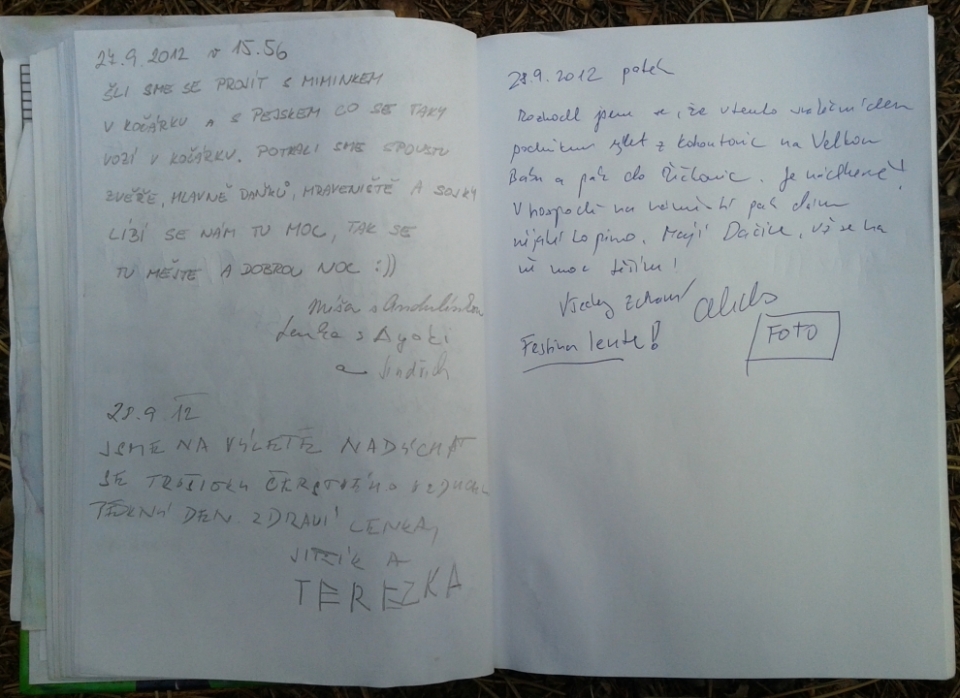 27.9.2012 v 15.56
ŠLI SME SE PROJÍT S MIMINKEM
V KOČÁRKU A S PEJSKEM CO SE TAKY
VOZÍ V KOČÁRKU. POTKALI SME SPOUSTU
ZVĚŘE, HLAVNĚ DAŇKŮ, MRAVENIŠTĚ A SOJKY
LÍBÍ SE NÁM TU MOC, TAK SE
TU MĚJTE A DOBROU NOC :))
Míša s Andulínkou
Lenka s
a Jindřich
28.9 12
JSME NA VÝLETĚ NADÝCHAT
SE TROŠIČKU ČERSTVÉHO VZDUCHU
PĚKNÝ DEN ZDRAVÍ LENKA,
JIŘÍK A
TEREZKA
28.9.2012 pátek
Rozhodl jsem se, že v tento sváteční den
podniknu výlet z Kohoutovic na Velkou
Babu a pak do Řičkovic. Je nádherně!
V hospodě na náměstí pak dám
nějaké to pivo. Mají Dačice, už se na
ně moc těším!
Všechny zdraví
Festina lente!
FOTO